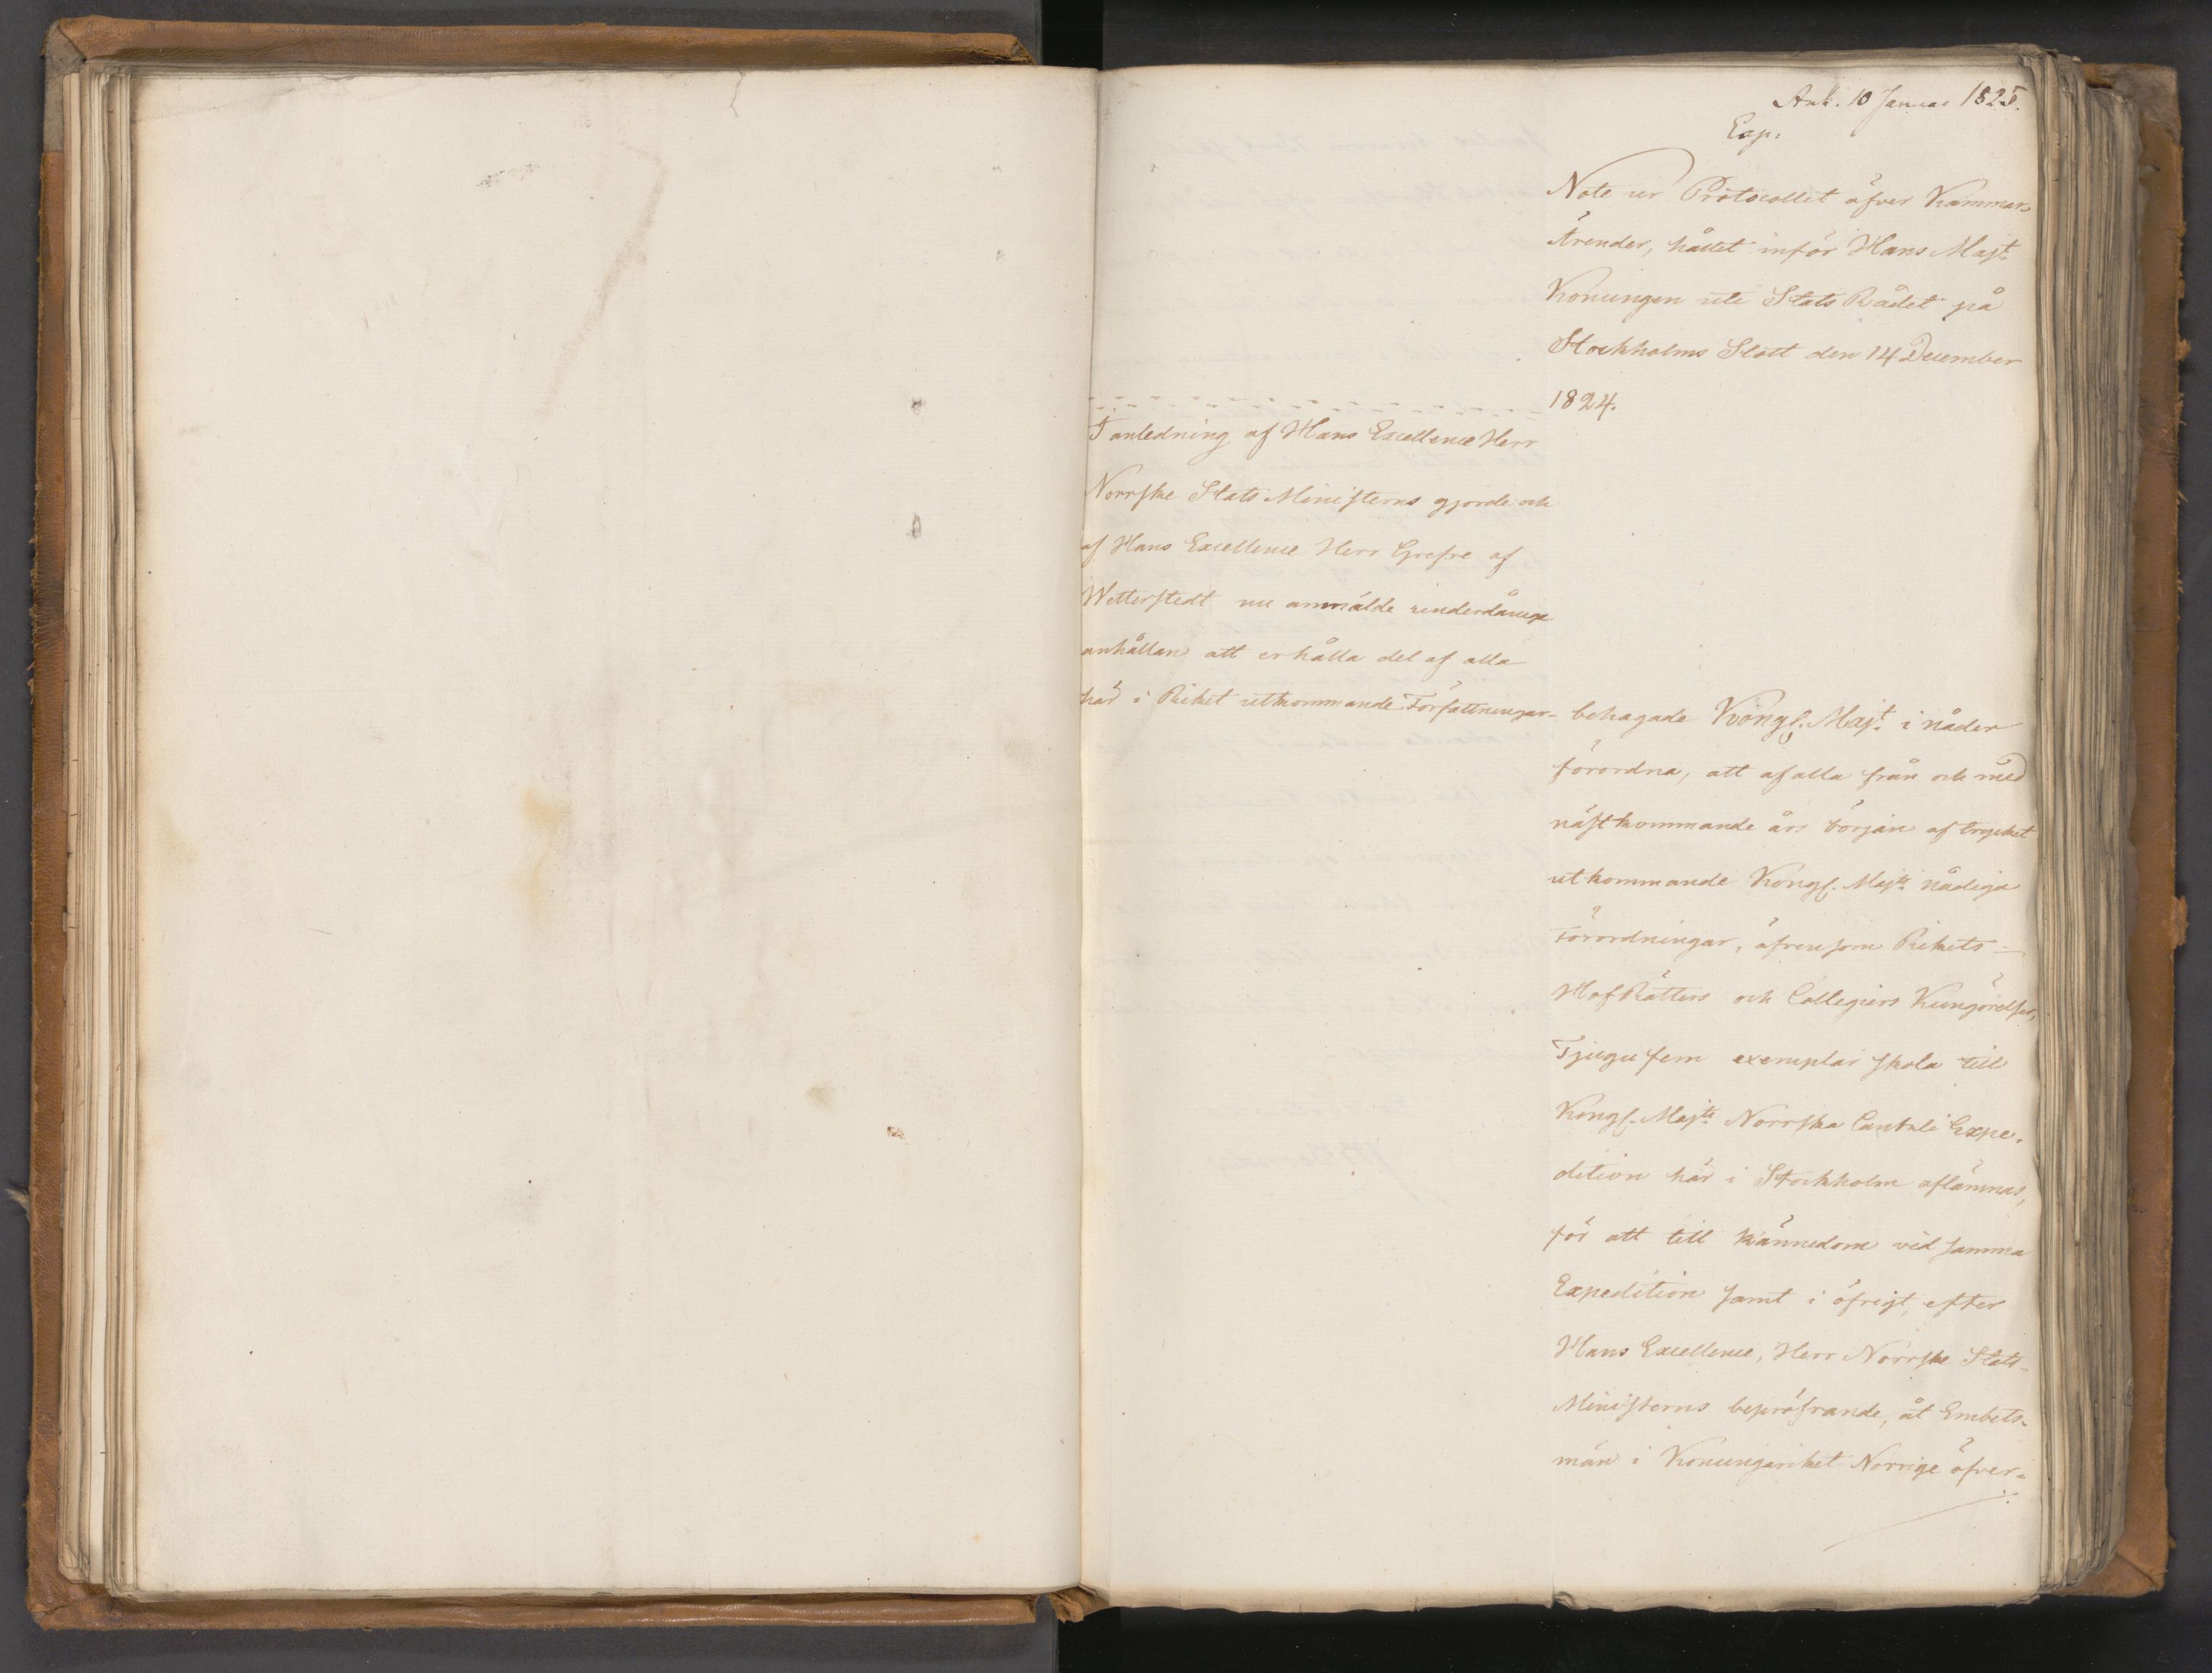 Ank. 10 Januar 1825.
Exp.
Note ur Protocollet öfver Kammars
Ärender, hållet inför Hans Majt.
Konungen uti Stats Rådet på
Stockholms Slott den 14 December
1824.
I anledning af Hans Excellence Herr
Norrske Stats Ministerns gjorde och
af Hans Excellence Herr Grefve af
Wetterstedt nu anmälde underdånige
anhållan att erhålla del af alla
här i Riket utkommande Författningar
behagade Kongl. Majt. i nåder
förordna, att af alla från och med
nästkommande års början af trycket
utkommande Kongl. Majts. nådiga
Förordningar, äfvensom Rikets
HofRätters och Collegiers Kungörelser,
Tjugufem exemplar skola till
Kongl. Majts. Norrska Cantzli Expe-
dition här i Stockholm aflämnas,
för att till kännedom vid samma
Expedition samt i öfrigt, efter
Hans Excellence, Herr Norrske Stats-
Ministerns bepröfvande, åt Embets-
män i Konungariket Norrige öfver-